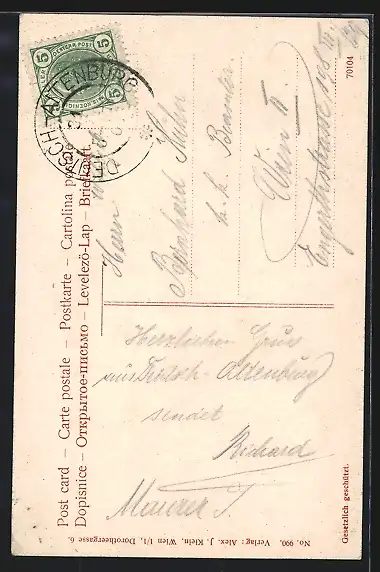 Post card — Carte postale — Postkarte — Cartolina postale
Dopisnice — Открытое-письмо — Levelező-Lap — Briefkaart.
5
5
5
DEUTSCH-ALTENBURG
Herrn
Bernhard
k. k. Beamter
Wien II
Engerthstrasse
Herzlichen Gruss
aus Deutsch-Altenburg
sendet
Richard
Maurer
No. 990, Verlag: Alex. J. Klein, Wien I/1, Dorotheergasse 6.
Gesetzlich geschützt.
70104